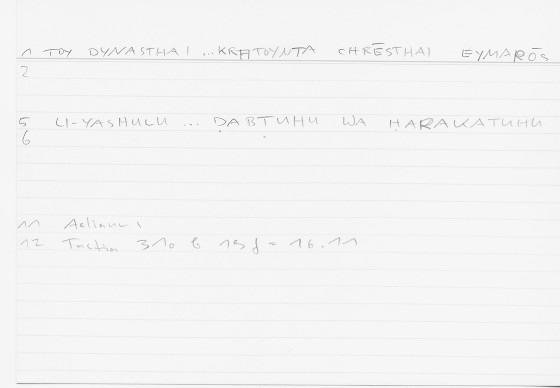 1 TOY DYNASTHAI ... KRATOYNTA CHRĒSTHAI EYMARŌS
2
5 LI-YASHULU ... ḌABṬUHU WA ḤARAKATUHU
6
11 Aelianus
12 Tactica 310 b 19 f = 16.11